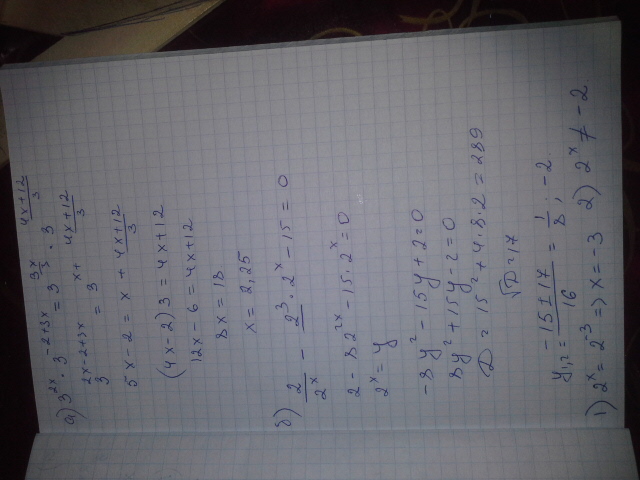 а) 3^{2x} · 3^{-2+3x} = 3^{\frac{3x}{3}} · 3^{\frac{4x+12}{3}}
3^{2x-2+3x} = 3^{x+\frac{4x+12}{3}}
5x-2 = x + \frac{4x+12}{3}
(4x-2)3 = 4x+12
12x-6 = 4x+12
8x = 18
x = 2,25
б) \frac{2}{2^x} - 2^3 · 2^x - 15 = 0
2 - 8 2^{2x} - 15 · 2^x = 0
2^x = y
-8y^2 - 15y + 2 = 0
8y^2 + 15y - 2 = 0
D = 15^2 + 4·8·2 = 289
√D = 17
y_{1,2} = \frac{-15±17}{16} = \frac{1}{8}; -2
1) 2^x = 2^{-3} => x = -3 2) 2^x ≠ -2